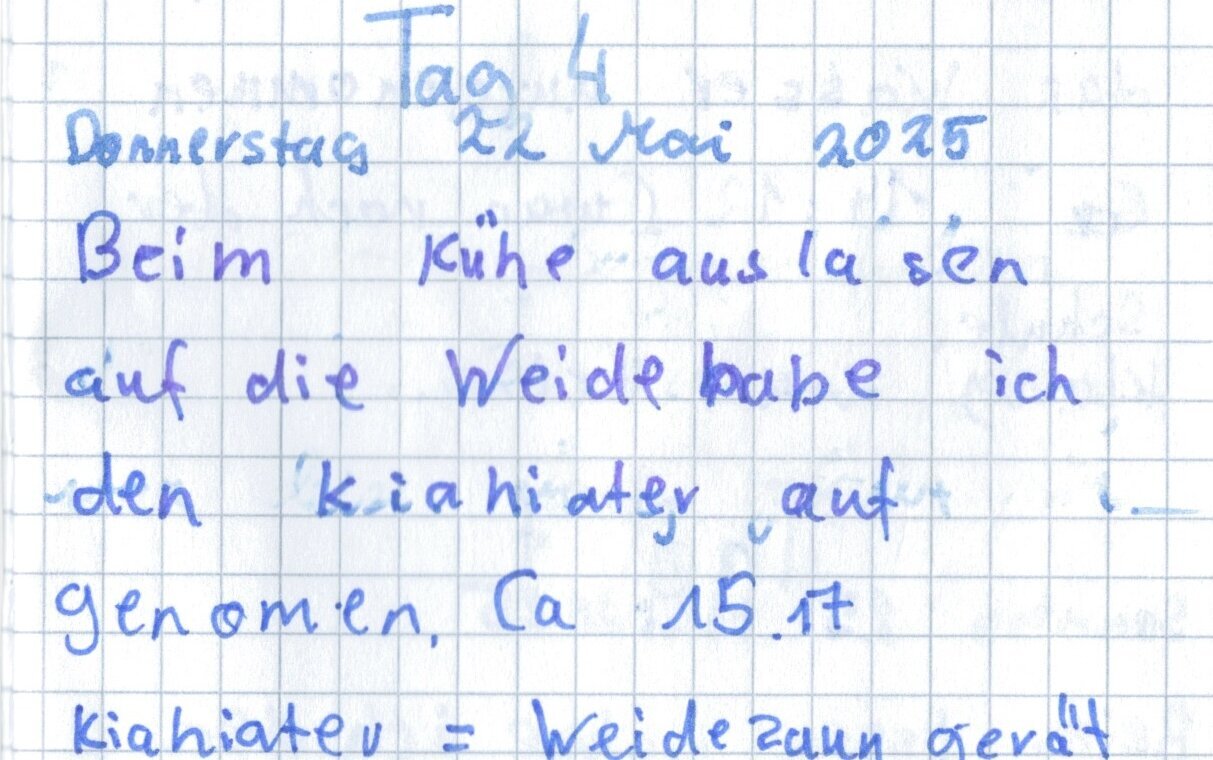 Tag 4
Donnerstag 22 Mai 2025
Beim Kühe auslasen
auf die Weide habe ich
den kiahiater auf
genomen, Ca 15.17
kiahiater = Weidezaun gerät